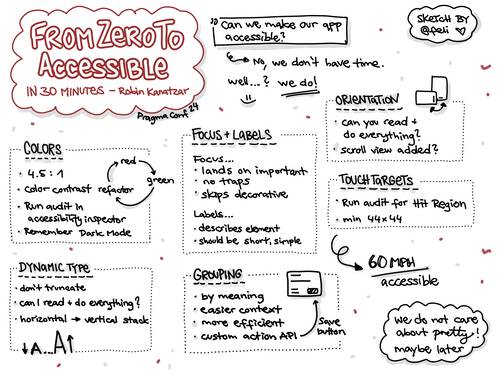 FROM ZERO TO
ACCESSIBLE
IN 30 MINUTES ~ Robin Kanatzar
Pragma Conf '24
"Can we make our app
accessible?"
No, we don't have time.
well...? we do!
SKETCH BY
@feli
COLORS
• 4.5 : 1
• color contrast refactor
• Run audit in
accessibility inspector
• Remember Dark Mode
red
green
FOCUS + LABELS
Focus...
• lands on important
• no traps
• skips decorative
Labels...
• describes element
• should be short, simple
ORIENTATION
• can you read +
do everything?
• scroll view added?
TOUCH TARGETS
• Run audit for Hit Region
• min 44x44
DYNAMIC TYPE
• don't truncate
• can I read + do everything?
• horizontal → vertical stack
↓A...A↑
GROUPING
• by meaning
• easier context
• more efficient
• custom action API
Save
button
60 MPH
accessible
we do not care
about pretty!
maybe later